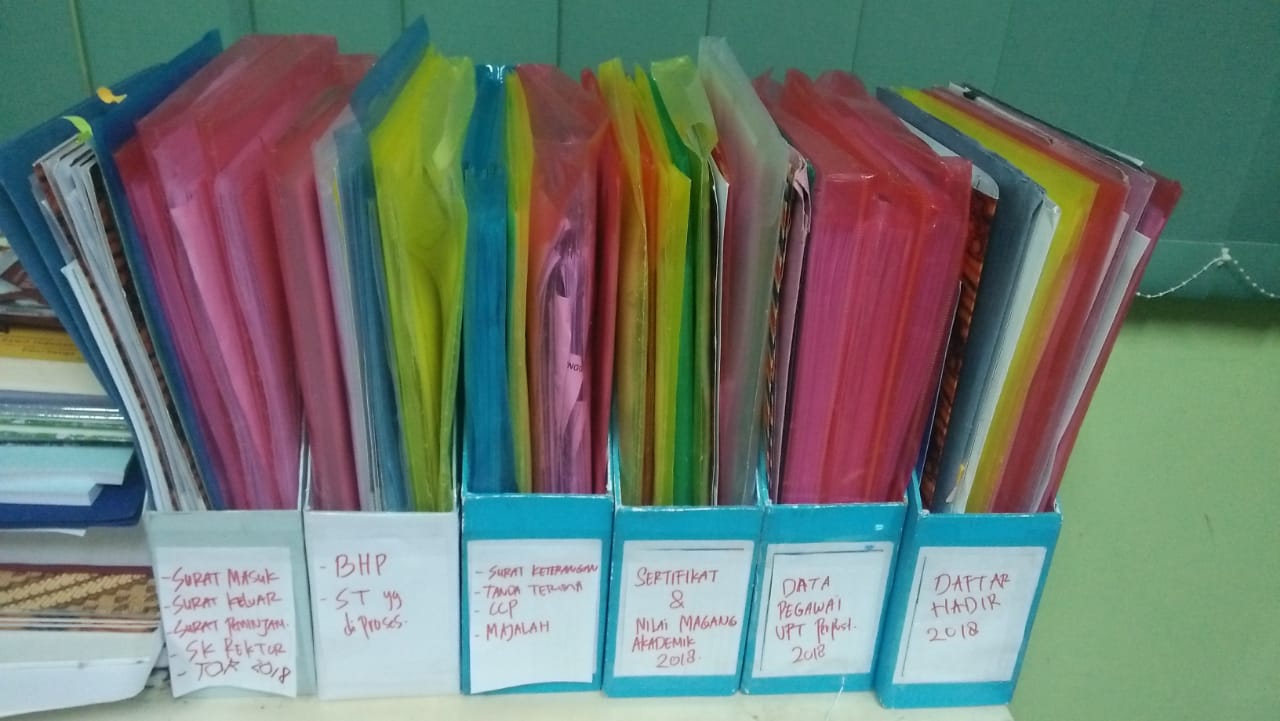 - SURAT MASUK
- SURAT KELUAR
- SURAT PEMINJAM.
- SK REKTOR
- TOR 2018
- BHP
- ST yg
di proses.
- SURAT KETERANGAN
- TANDA TERIMA
- CCP
- MAJALAH
SERTIFIKAT
&
NILAI MAGANG
AKADEMIK
2018.
DATA
PEGAWAI
UPT Perpust.
2018
DAFTAR
HADIR
2018